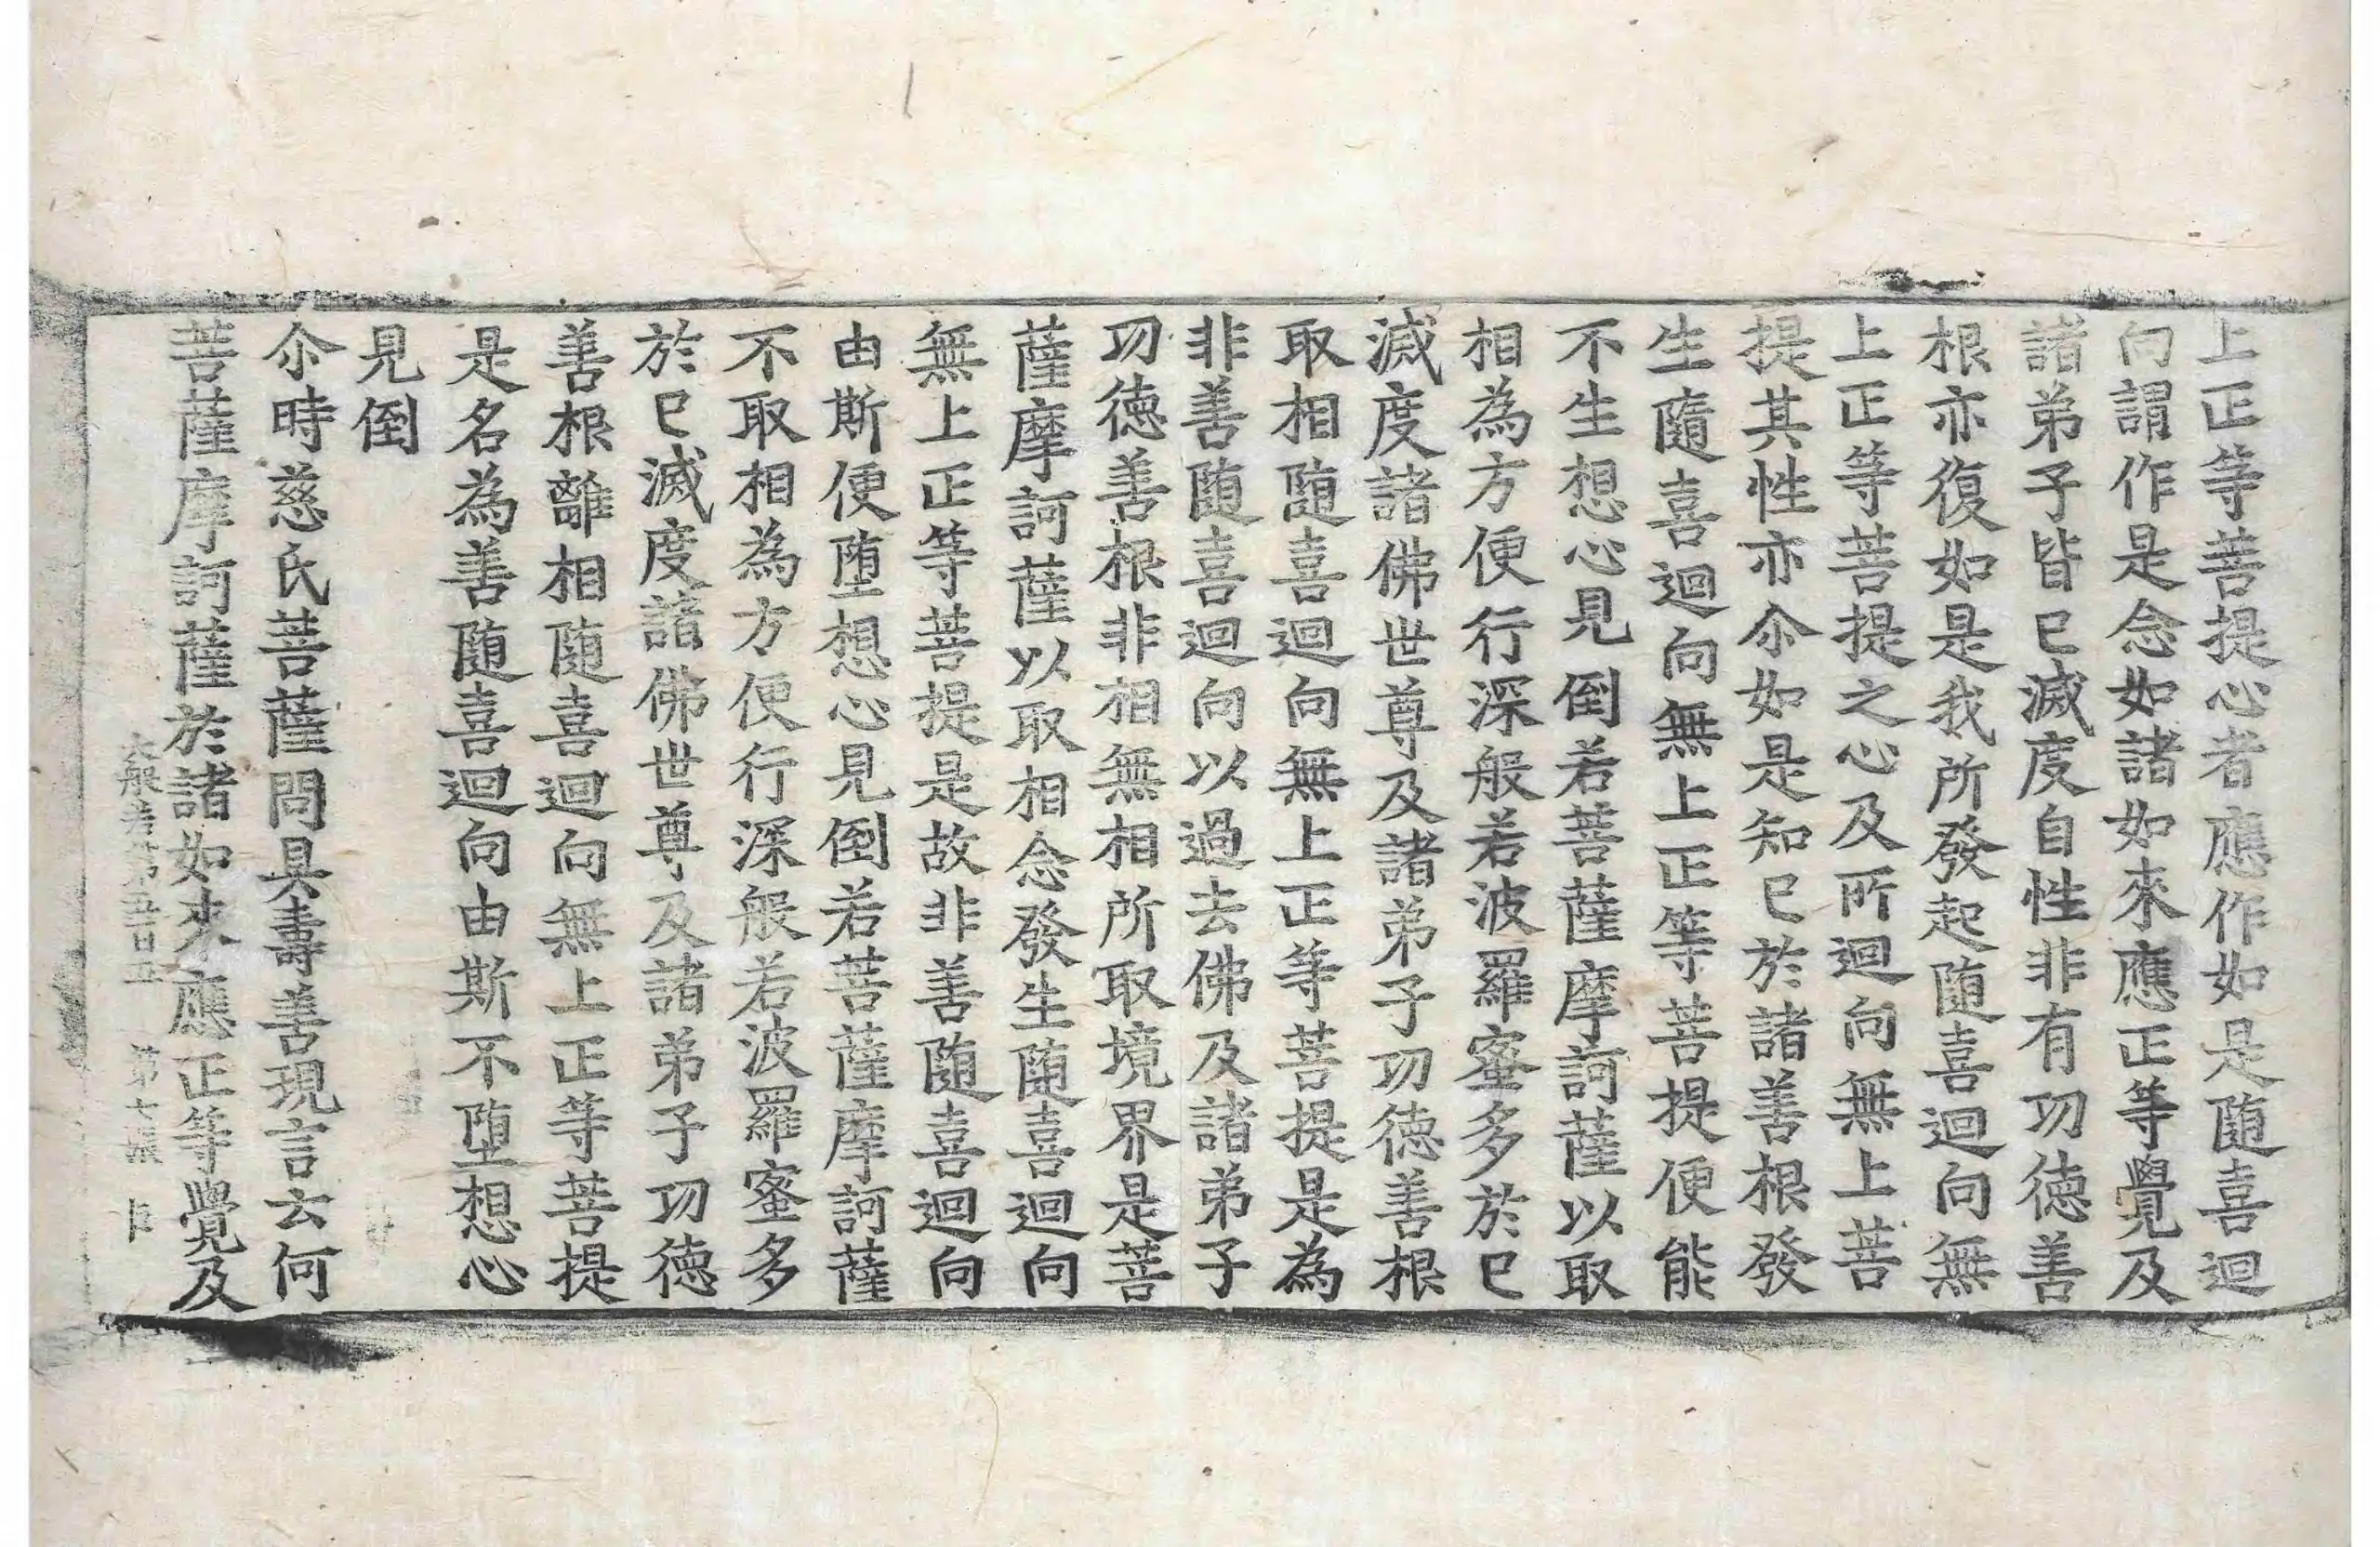 上正等菩提心者應作如是随喜迴
向謂作是念如諸如來應正等覺及
諸弟子皆已滅度自性非有功徳善
根亦復如是我所發起随喜迴向無
上正等菩提之心及所迴向無上菩
提其性亦尒如是知已於諸善根發
生隨喜迴向無上正等菩提便能
不生想心見倒若菩薩摩訶薩以取
相為方便行深般若波羅蜜多於已
滅度諸佛世尊及諸弟子功徳善根
取相随喜迴向無上正等菩提是為
非善随喜迴向以過去佛及諸弟子
功徳善根非相無相所取境界是菩
薩摩訶薩以取相念發生随喜迴向
無上正等菩提是故非善随喜迴向
由斯便堕想心見倒若菩薩摩訶薩
不取相為方便行深般若波羅蜜多
於已滅度諸佛世尊及諸弟子功徳
善根離相随喜迴向無上正等菩提
是名為善随喜迴向由斯不堕想心
見倒
尒時慈氏菩薩問具壽善現言云何
菩薩摩訶薩於諸如來應正等覺及
大般若第五百五 第七張